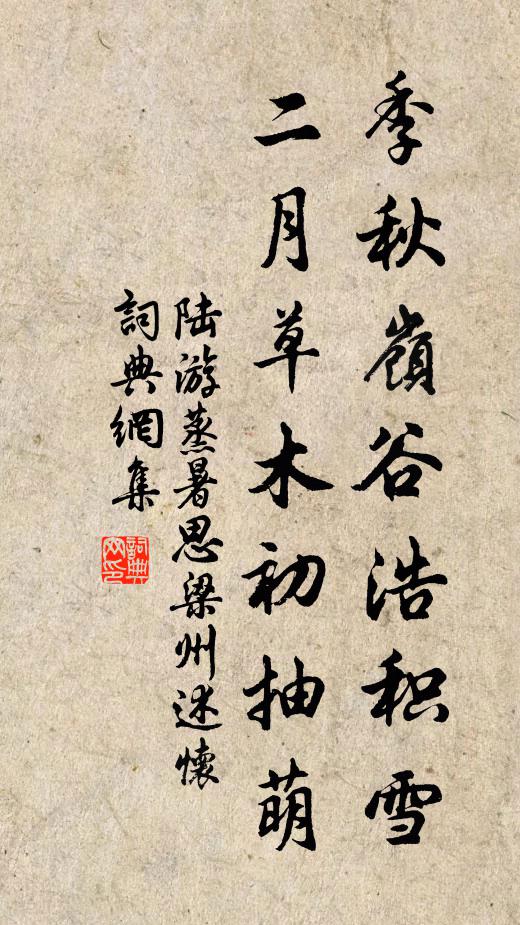 季秋嶺谷浩积雪
二月草木初抽萌
陆游蒸暑思梁州述懷
詞典網集
詞典网印